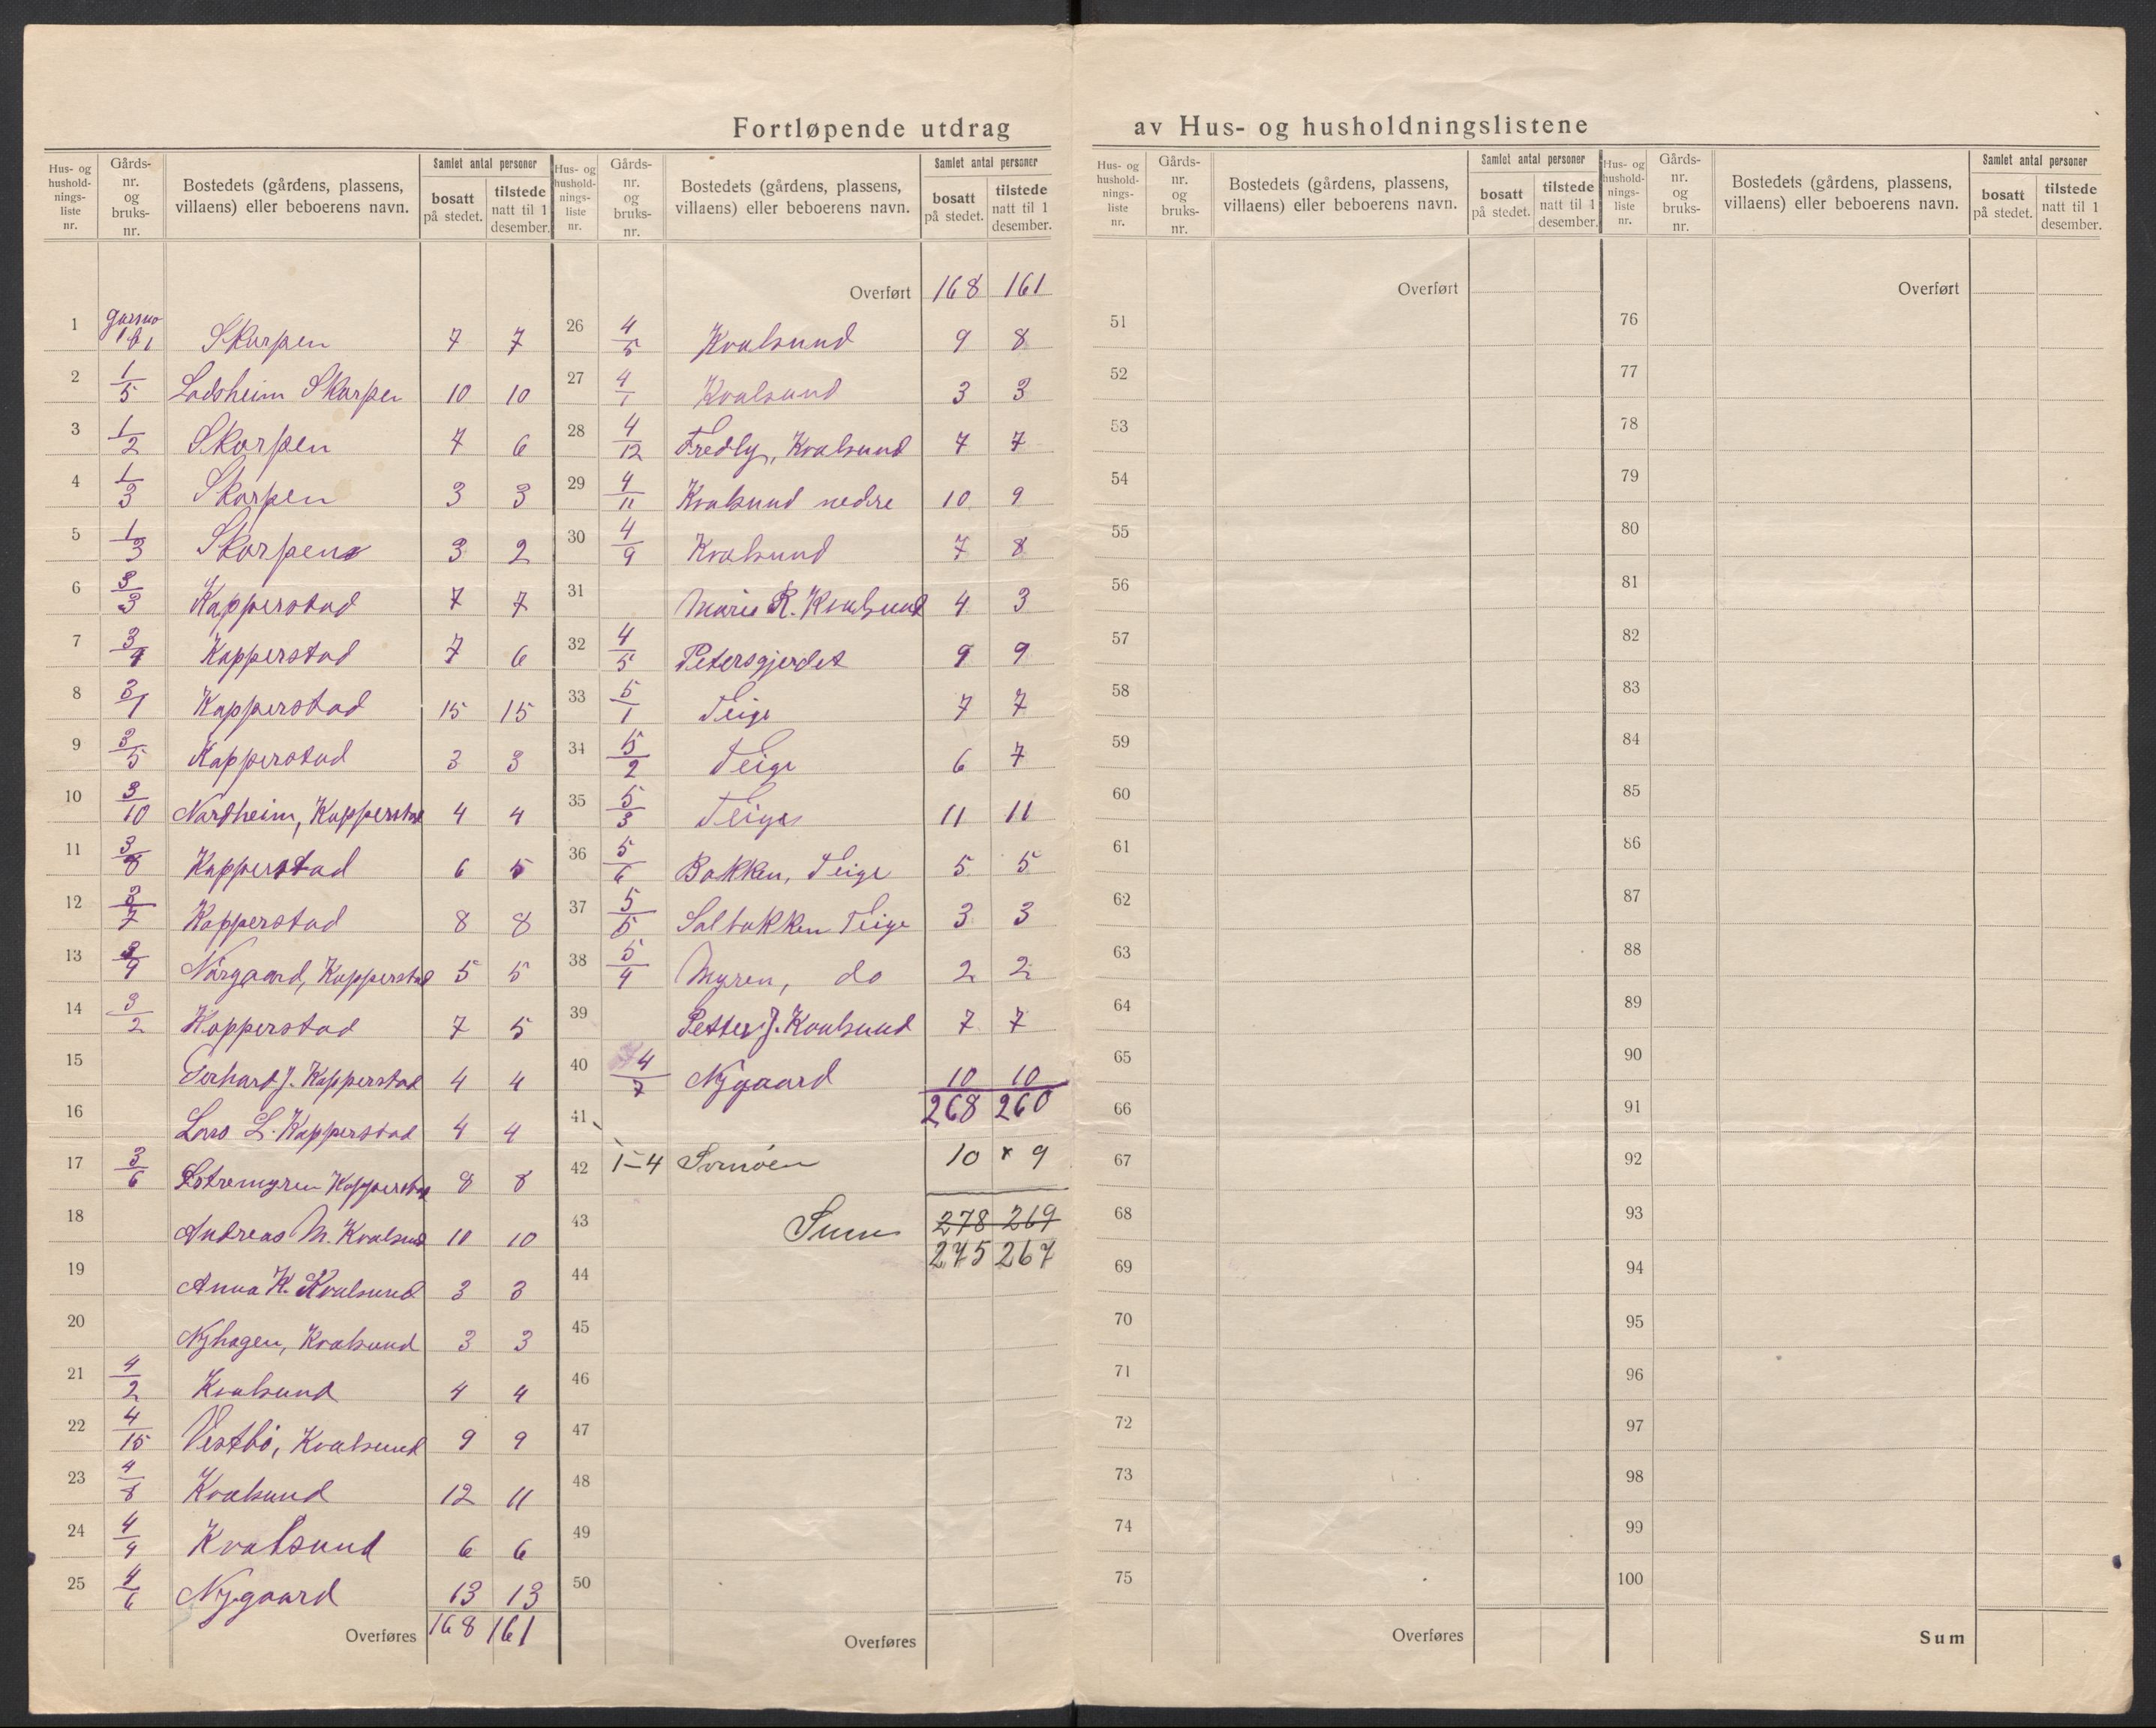 Fortløpende utdrag av Hus- og husholdningslistene
Hus- og husholdningsliste nr. | Gårdsnr. og bruksnr. | Bostedets (gårdens, plassens, villaens) eller beboerens navn. | Samlet antal personer | bosatt på stedet. | tilstede natt til 1 desember.
1 1/1 Skorpen 7 7
2 1/5 Ladsheim Skorpen 10 10
3 1/2 Skorpen 7 6
4 1/3 Skorpen 3 3
5 1/3 Skorpen 3 2
6 3/3 Kapperstad 7 7
7 3/4 Kapperstad 7 6
8 3/1 Kapperstad 15 15
9 3/5 Kapperstad 3 3
10 3/10 Nordheim, Kapperstad 4 4
11 3/8 Kapperstad 6 5
12 3/7 Kapperstad 8 8
13 3/9 Nörgaard, Kapperstad 5 5
14 3/2 Kapperstad 7 5
15 Gerhard J. Kapperstad 4 4
16 Lars L. Kapperstad 4 4
17 3/6 Kapperstad 8 8
18 Andreas M. Kvalsund 10
19 Anna K. Kvalsund 3 3
20 Nyhagen, Kvalsund 3 3
21 4/2 Kvalsund 4 4
22 4/15 Vestbö, Kvalsund 9 9
23 4/8 Kvalsund 12 11
24 4/4 Kvalsund 6 6
25 4/6 Nygaard 13 13
Overføres 168 161
Hus- og husholdningsliste nr. | Gårdsnr. og bruksnr. | Bostedets (gårdens, plassens, villaens) eller beboerens navn. | Samlet antal personer | bosatt på stedet. | tilstede natt til 1 desember.
Overført 168 161
26 4/5 Kvalsund 9 8
27 4/1 Kvalsund 3 3
28 4/12 Fredly, Kvalsund 7 7
29 4/11 Kvalsund nedre 10 9
30 4/9 Kvalsund 7 8
31 Marie R. Kvalsund 4 3
32 4/5 Petersgjerdet 9 9
33 5/1 Teige 7 7
34 5/2 Teige 6 7
35 5/3 Teige 11 11
36 5/6 Bakken, Teige 5 5
37 5/5 Solbakken Teige 3 3
38 5/4 Myren, do 2 2
39 Petter J. Kvalsund 7 7
40 4/7 Nygaard 10 10
268 260
41
42 1-4 10 × 9
43 Sum 278 269
275 267
44
45
46
47
48
49
50
Overføres
Hus- og husholdningsliste nr. | Gårdsnr. og bruksnr. | Bostedets (gårdens, plassens, villaens) eller beboerens navn. | Samlet antal personer | bosatt på stedet. | tilstede natt til 1 desember.
Overført
51
52
53
54
55
56
57
58
59
60
61
62
63
64
65
66
67
68
69
70
71
72
73
74
75
Overføres
Hus- og husholdningsliste nr. | Gårdsnr. og bruksnr. | Bostedets (gårdens, plassens, villaens) eller beboerens navn. | Samlet antal personer | bosatt på stedet. | tilstede natt til 1 desember.
Overført
76
77
78
79
80
81
82
83
84
85
86
87
88
89
90
91
92
93
94
95
96
97
98
99
100
Sum